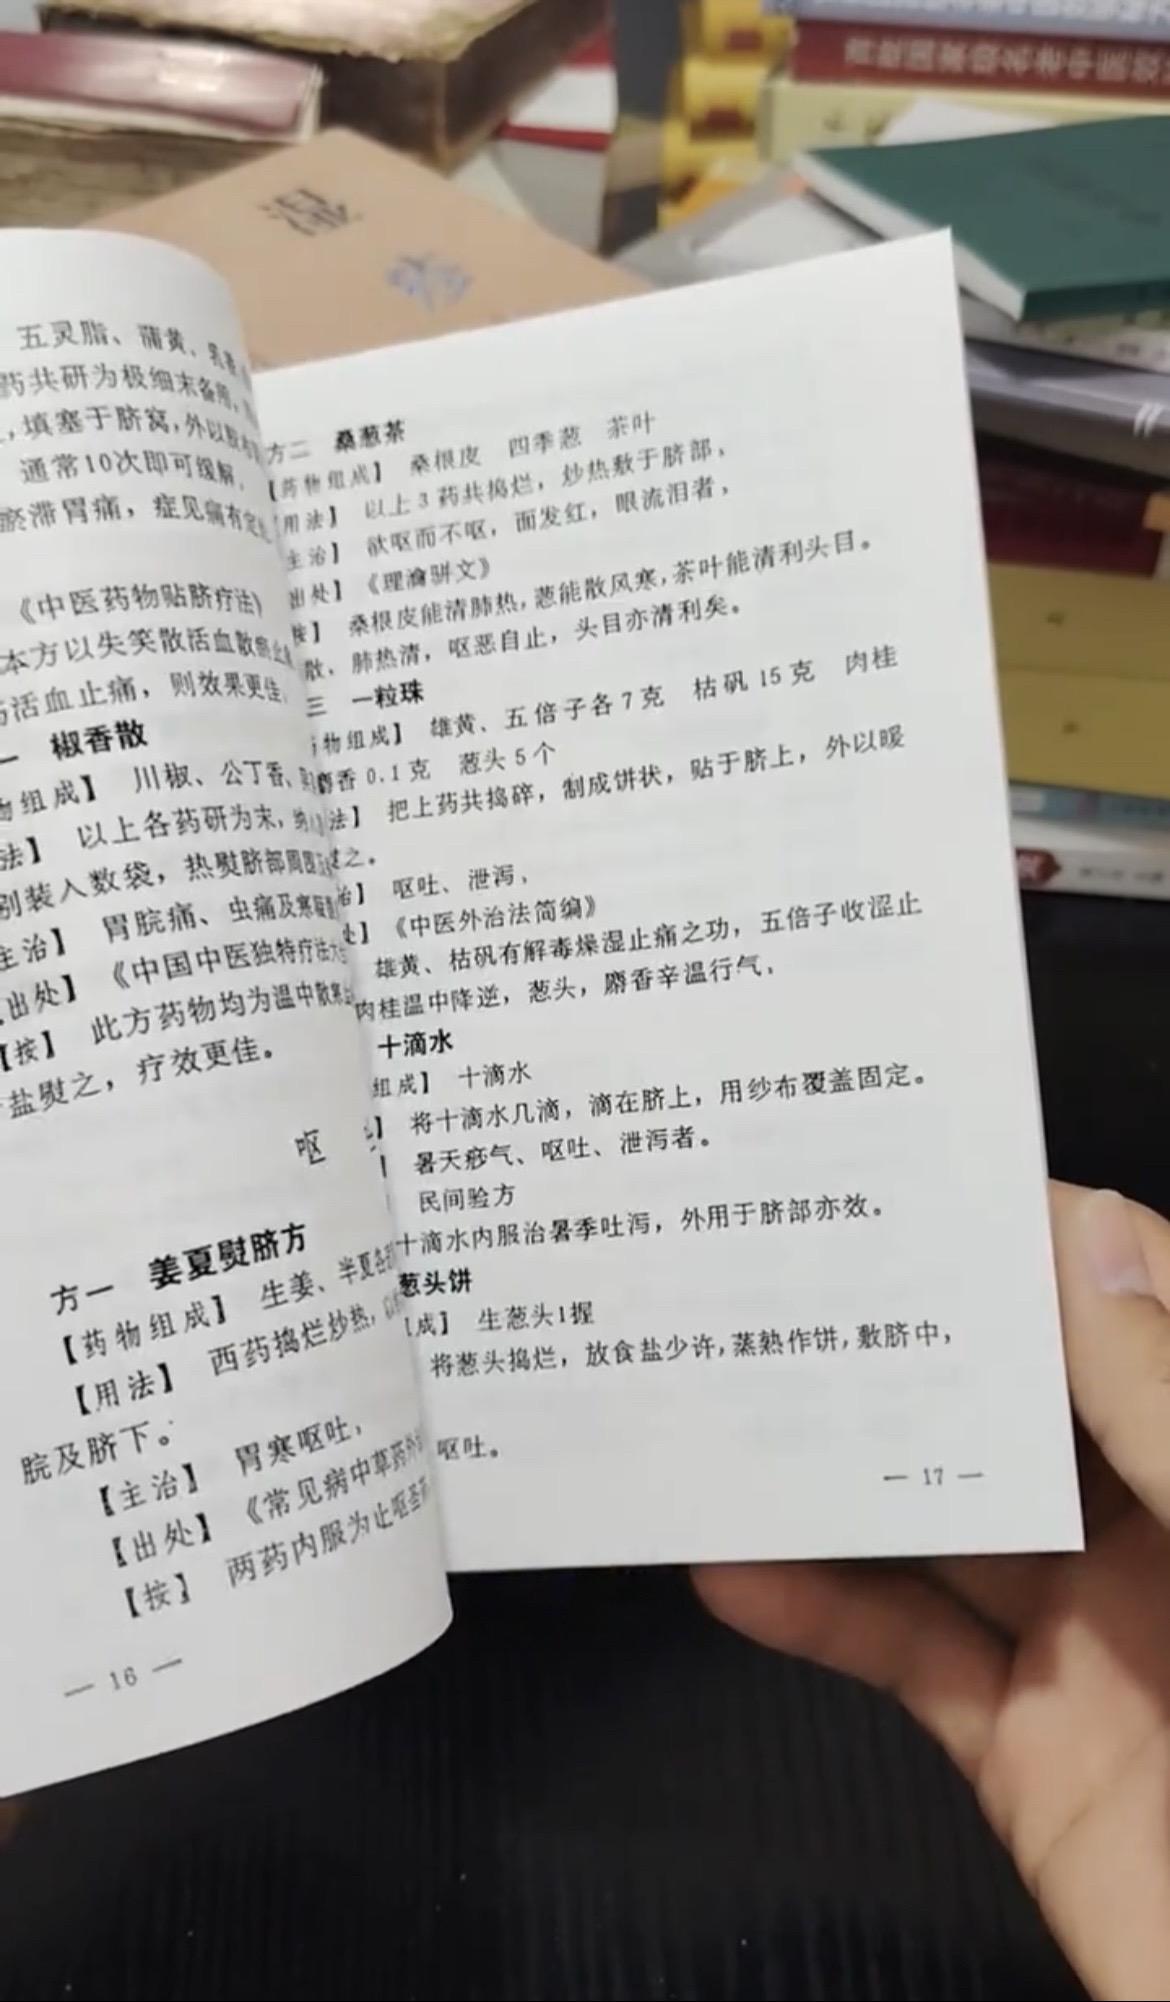 五灵脂、蒲黄、乳香
药共研为极细末备用,
,填塞于脐窝,外以胶布
通常10次即可缓解,
瘀滞胃痛,症见痛有定处,
《中医药物贴脐疗法》
本方以失笑散活血散瘀止
活血止痛,则效果更佳,
椒香散
物组成】 川椒、公丁香、
法】 以上各药研为末,
别装入数袋,热熨脐部周围
主治】 胃脘痛、虫痛及寒
出处】 《中国中医独特疗法大
【按】 此方药物均为温中散寒
盐熨之,疗效更佳。
呕
方一 姜夏熨脐方
【药物组成】 生姜、半夏各
【用法】 西药捣烂炒热,
脘及脐下。
【主治】 胃寒呕吐,
【出处】 《常见病中草药外
【按】 两药内服为止呕圣
— 16 —
方二 桑葱茶
【药物组成】 桑根皮 四季葱 茶叶
用法】 以上3药共捣烂,炒热敷于脐部,
主治】 欲呕而不呕,面发红,眼流泪者,
出处】 《理瀹骈文》
按】 桑根皮能清肺热,葱能散风寒,茶叶能清利头目。
散,肺热清,呕恶自止,头目亦清利矣。
三 一粒珠
药物组成】 雄黄、五倍子各7克 枯矾15克 肉桂
麝香0.1克 葱头5个
法】 把上药共捣碎,制成饼状,贴于脐上,外以暖
之。
治】 呕吐、泄泻,
处】 《中医外治法简编》
雄黄、枯矾有解毒燥湿止痛之功,五倍子收涩止
肉桂温中降逆,葱头,麝香辛温行气,
十滴水
组成】 十滴水
】 将十滴水几滴,滴在脐上,用纱布覆盖固定。
暑天痧气、呕吐、泄泻者。
民间验方
十滴水内服治暑季吐泻,外用于脐部亦效。
葱头饼
成】 生葱头1握
将葱头捣烂,放食盐少许,蒸熟作饼,敷脐中,
呕吐。
— 17 —